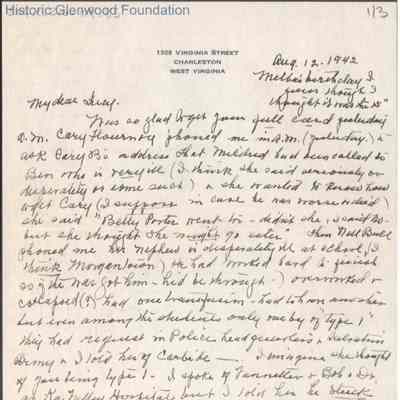 Historic Glenwood Foundation
1/3
1328 VIRGINIA STREET
CHARLESTON
WEST VIRGINIA
Aug. 12. 1942
birthday I
guess though I
thought it was the 15"
My dear Lucy,
Was so glad to get your full card yesterday
a.m. Cary Flournoy phoned me in a.m. (yesterday.) to
ask Cary B's address that Mildred had been called to
Ben who is very ill (I think she said seriously or
desperately or some such) & she wanted to know how
to get Cary (I suppose in case he was worse & died)
she said "Betty Porter went to - didn't she, I said No
but she thought she might go later" Then Nell Bull
phoned me her nephew is desperately ill at school, (I
think Morgantown) He had worked hard to finish
so (the war got him - he'd be through.) overworked &
collapsed (?) had one transfusion - had to have another
but even among the students only one by of type 1"
they had request in Police headquarters & Salvation
Army & I told her of Carbide - I imagine she thought
of your being type 1 - I spoke of & Bob & Dr.
at Ka. Valley Hospital but I told her he